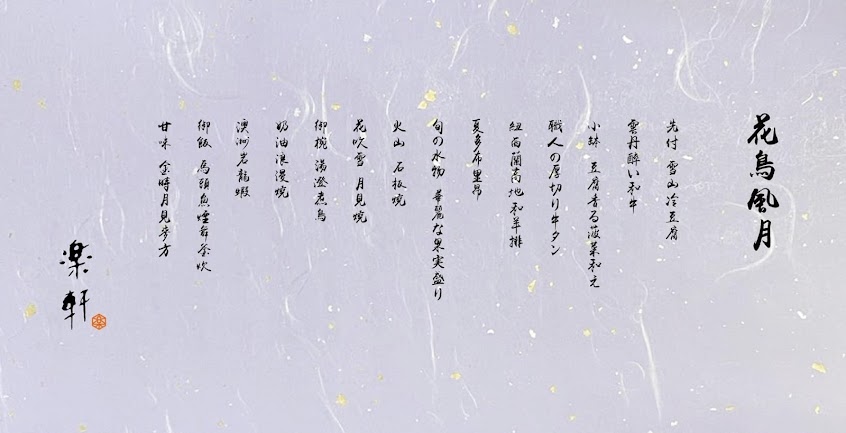 花鳥風月
先付 雪山冷豆腐
雲丹酔い和牛
小鉢 豆腐香る菠菜和え
職人の厚切り牛タン
紐西蘭高地和羊排
夏多布里昂
旬の水物 華麗な果実盛り
火山 石板燒
花吹雪 月見燒
御椀 湯澄煮鳥
奶油浪漫燒
澳洲岩龍蝦
御飯 馬頭魚煙舞釜炊
甘味 金時月見麥方
楽軒